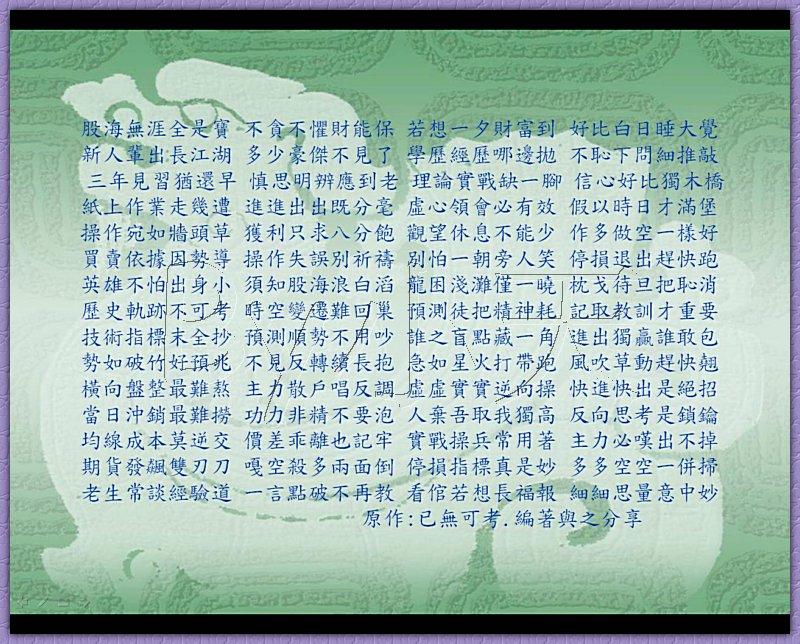 股海無涯全是寶 不貪不懼財能保 若想一夕財富到 好比白日睡大覺
新人輩出長江湖 多少豪傑不見了 學歷經歷哪邊拋 不恥下問細推敲
三年見習猶還早 慎思明辨應到老 理論實戰缺一腳 信心好比獨木橋
紙上作業走幾遭 進進出出既分毫 虛心領會必有效 假以時日才滿堡
操作宛如牆頭草 獲利只求八分飽 觀望休息不能少 作多做空一樣好
買賣依據因勢導 操作失誤別祈禱 別怕一朝旁人笑 停損退出趕快跑
英雄不怕出身小 須知股海浪白滔 龍困淺灘僅一曉 枕戈待旦把恥消
歷史軌跡不可考 時空變遷難回巢 預測徒把精神耗 記取教訓才重要
技術指標末全抄 預測順勢不用吵 誰之盲點藏一角 進出獨贏誰敢包
勢如破竹好預兆 不見反轉續長抱 急如星火打帶跑 風吹草動趕快翹
橫向盤整最難熬 主力散戶唱反調 虛虛實實逆向操 快進快出是絕招
當日沖銷最難撈 功力非精不要泡 人棄吾取我獨高 反向思考是鎖鑰
均線成本莫逆交 價差乖離也記牢 實戰操兵常用著 主力必嘆出不掉
期貨發飆雙刃刀 嘎空殺多兩面倒 停損指標真是妙 多多空空一併掃
老生常談經驗道 一言點破不再教 看倌若想長福報 細細思量意中妙
原作:已無可考.編著與之分享